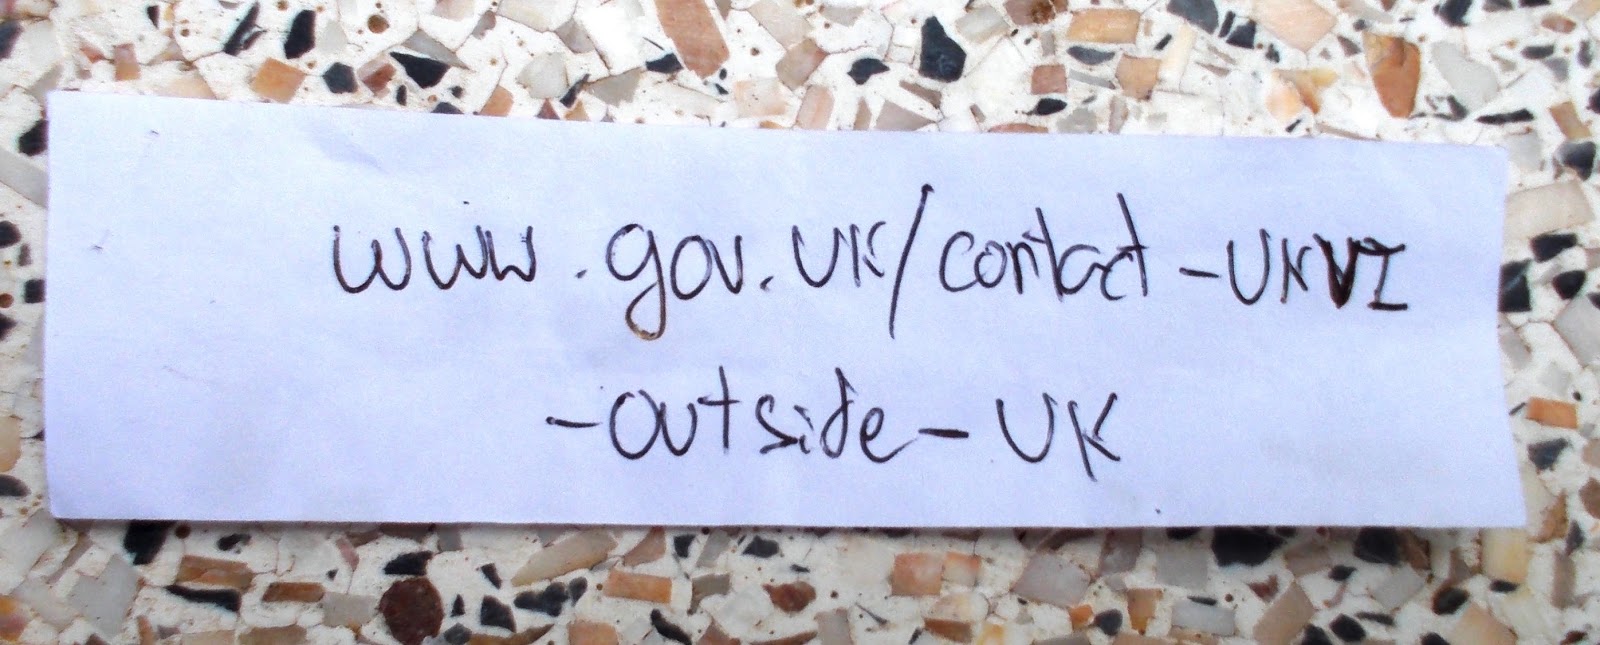 www.gov.UK/contact-UKVI
-outside-UK